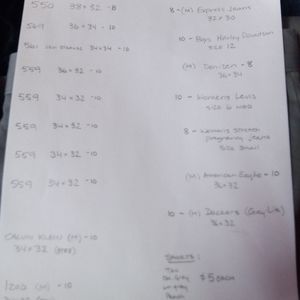 550 38×32 -8
569 36×34 -10
34×34 -10
559 36×32 -10
559 34×32 -10
559 34×32 -10
559 34×32 -10
559 34×32 -10
CALVIN KLEIN (M) -10
34×32
IZOD (M) -10
8 - (M) Express Jeans
32×30
10 - Boys Harley Davidson
Size 12
(M) Denizen - 8
36×34
10 - Women's Levis
Size 6
8 - Women's Stretch
pregnancy jeans
Size Small
(M) American Eagle - 10
36×32
10 - (M) Dockers (Grey
36×32
SHORTS:
Tan
$5 EACH